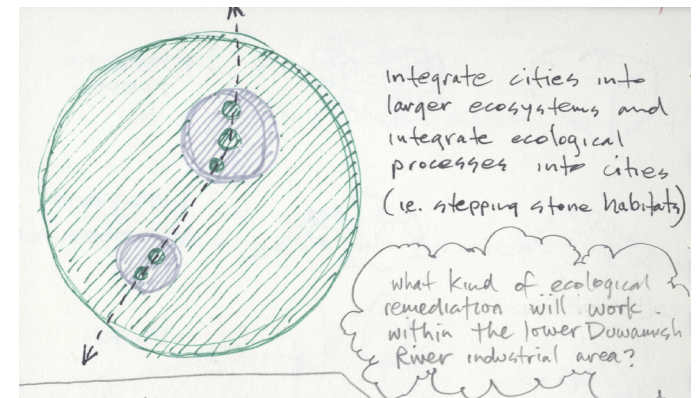 integrate cities into
larger ecosystems and
integrate ecological
processes into cities
(ie. stepping stone habitats)
what kind of ecological
remediation will work
within the lower Duwamish
River industrial area?